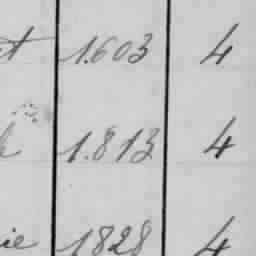 t 1.603 4
1.813 4
ie 1828 4